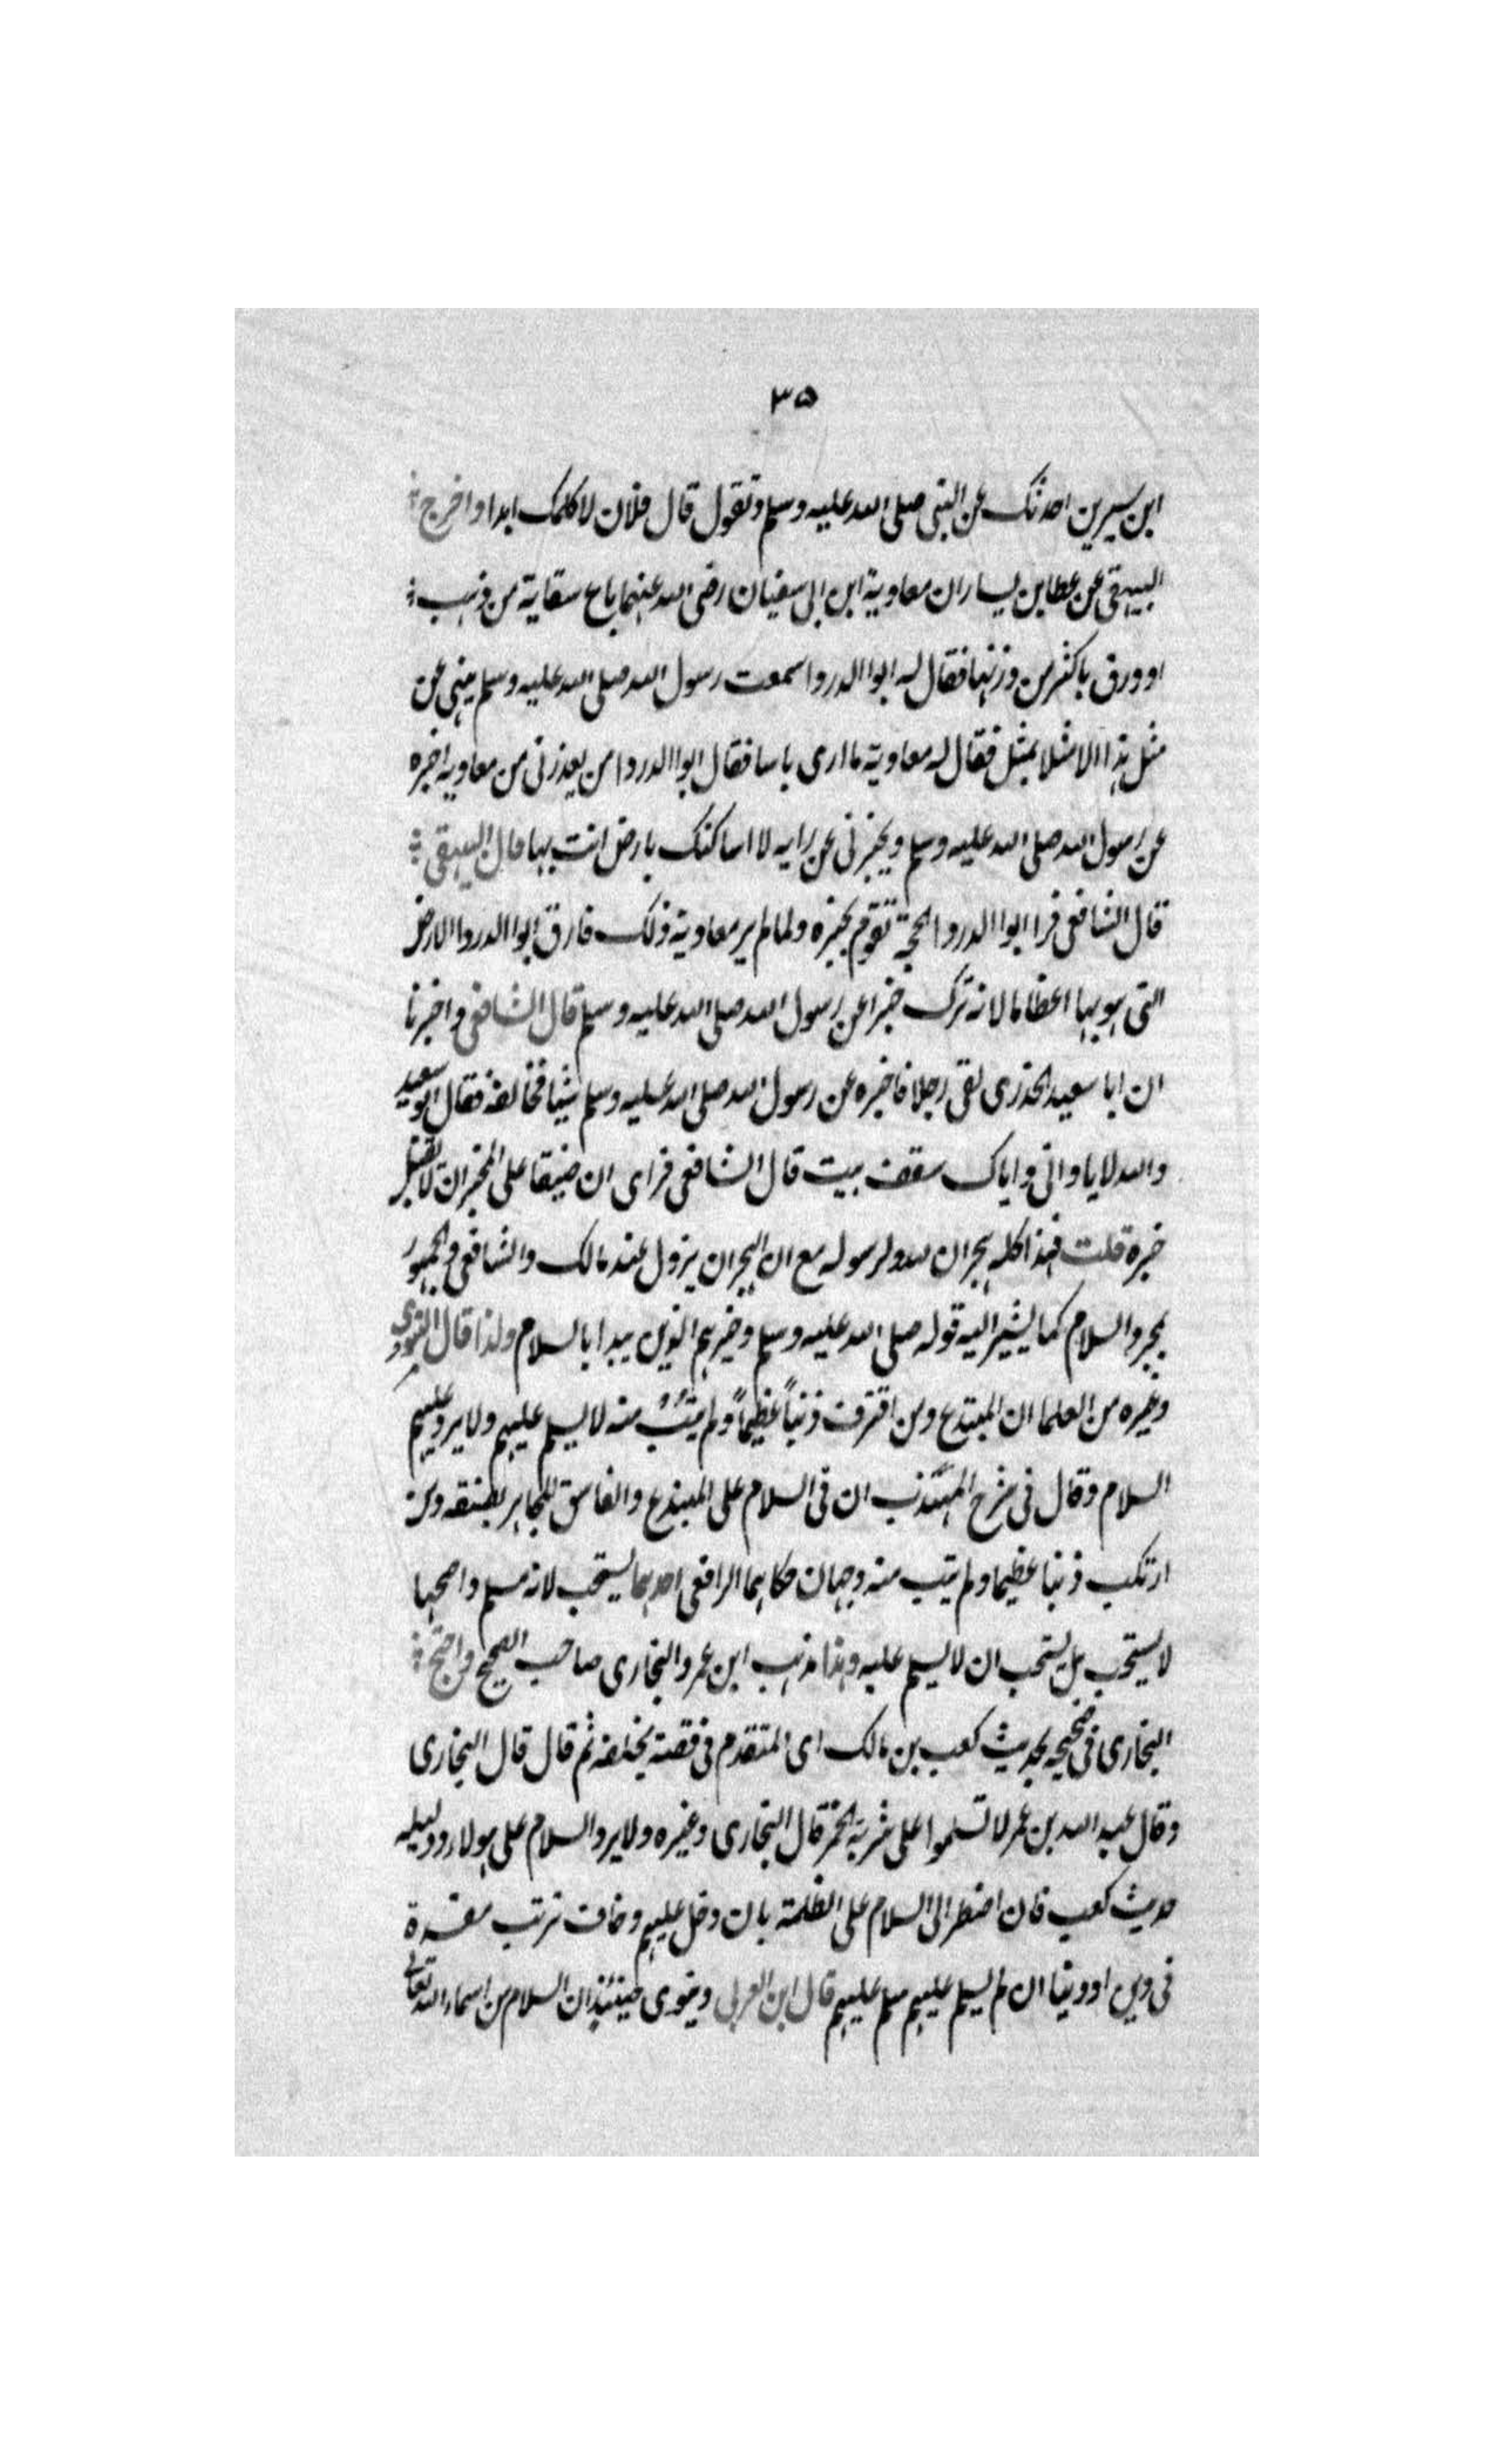 ٣٥
ابن سيرين احدثك عن النبي صلى الله عليه وسلم وتقول قال فلان لا كلمك ابدا واخرج
البيهقي عن عطا بن يسار ان معاوية ابن ابي سفيان رضي الله عنهما باع سقاية من ذهب
او ورق باكثر من وزنها فقال له ابوا الدردا سمعت رسول الله صلى الله عليه وسلم ينهى عن
مثل هذا الا مثلا بمثل فقال له معاوية ما ارى باسا فقال ابوا الدردا من يعذرني من معاوية اخبره
عن رسول الله صلى الله عليه وسلم ويخبرني عن رايه لا اساكنك بارض انت بها قال البيهقي
قال الشافعي فرا ابوا الدردا الحجة تقوم بخبره ولما لم ير معاوية ذلك فارق ابوا الدردا الارض
التي هو بها اعظاما لانه ترك خبرا عن رسول الله صلى الله عليه وسلم قال الشافعي واخبرنا
ان ابا سعيد الخدرى لقى رجلا فاخبره عن رسول الله صلى الله عليه وسلم شيئا فخالفه فقال ابو سعيد
والله لا ياواني واياك سقف بيت قال الشافعي فراى ان ضيقا على المخبر ان لا يقبل
خبره قلت فهذا كله هجران لله ولرسوله مع ان الهجران يزول عند مالك والشافعي والجمهور
بمجرد السلام كما يشير اليه قوله صلى الله عليه وسلم وخيرهم الذي يبدا بالسلام ولذا قال النووي
وغيره من العلما ان المبتدع ومن اقترف ذنباً عظيماً ولم يتُبْ منه لا يسلم عليهم ولا يرد عليهم
السلام وقال في شرح المهذب ان في السلام على المبتدع والفاسق المجاهر بفسقه ومن
ارتكب ذنبا عظيما ولم يتب منه وجهان حكاهما الرافعي احدهما يستحب لانه مسلم واصحها
لا يستحب بل يستحب ان لا يسلم عليه وهذا مذهب ابن عمر والبخارى صاحب الصحيح واحتج
البخارى في صحيحه بحديث كعب بن مالك اى المتقدم في قصة تخلفه ثم قال قال البخارى
وقال عبد الله بن عمر لا تسلموا على شربة الخمر قال البخارى وغيره ولا يرد السلام على هولا ودليله
حديث كعب فان اضطر الى السلام على الظلمة بان دخل عليهم وخاف ترتب مفسدة
في دين او دنيا ان لم يسلم عليهم سلم عليهم قال ابن العربي وينوى حينئذ ان السلام من اسماء الله تعالى